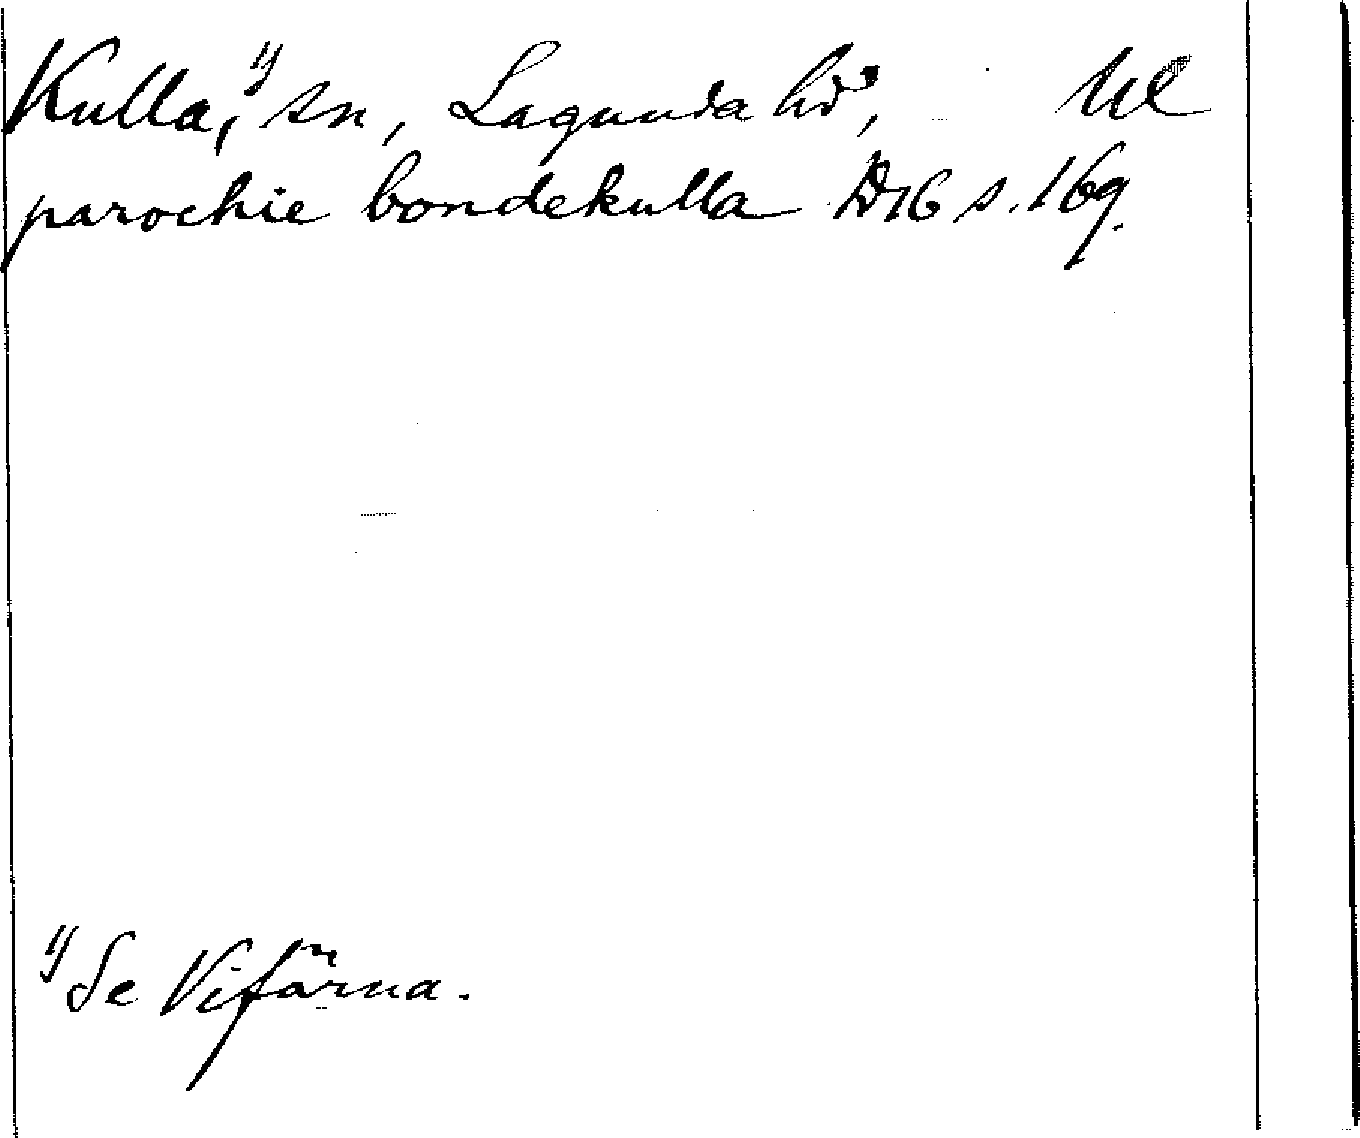 Kulla,¹⁾ sn, Lagunda hd, Ul
parochie bondekulla D16 s. 169.
¹⁾ Se Vifärna.